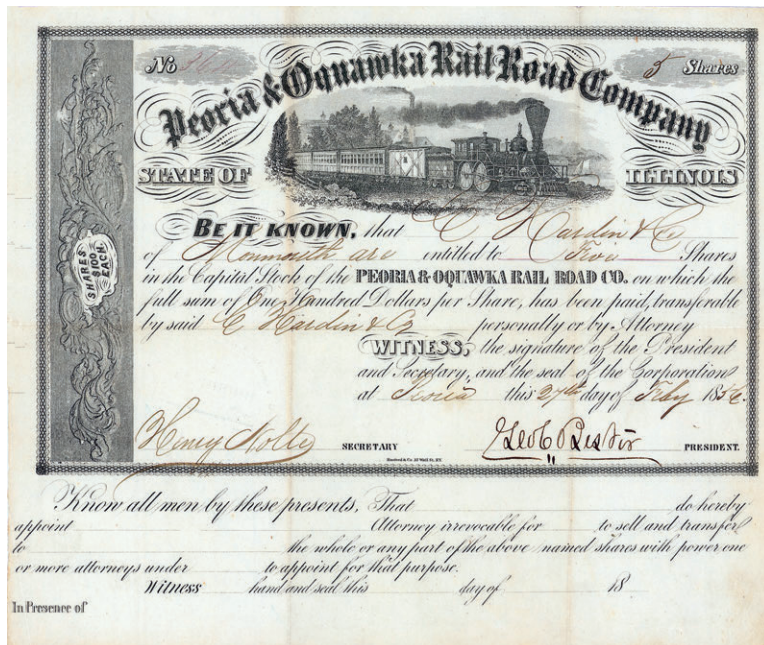 No
5 Shares
Peoria & Oquawka Rail Road Company
STATE OF ILLINOIS
SHARES
$100
EACH.
BE IT KNOWN, that C Hardin & Co
of Monmouth are entitled to Five Shares
in the Capital Stock of the PEORIA & OQUAWKA RAIL ROAD CO. on which the
full sum of One Hundred Dollars per Share, has been paid, transferable
by said C Hardin & Co personally or by Attorney
WITNESS, the signature of the President
and Secretary, and the seal of the Corporation
at Peoria this 27th day of Feby 1856.
Henry Nolte SECRETARY Geo C Bestor PRESIDENT.
Know all men by these presents, That do hereby
appoint Attorney irrevocable for to sell and transfer
to the whole or any part of the above named shares with power one
or more attorneys under to appoint for that purpose.
Witness hand and seal this day of 18
In Presence of